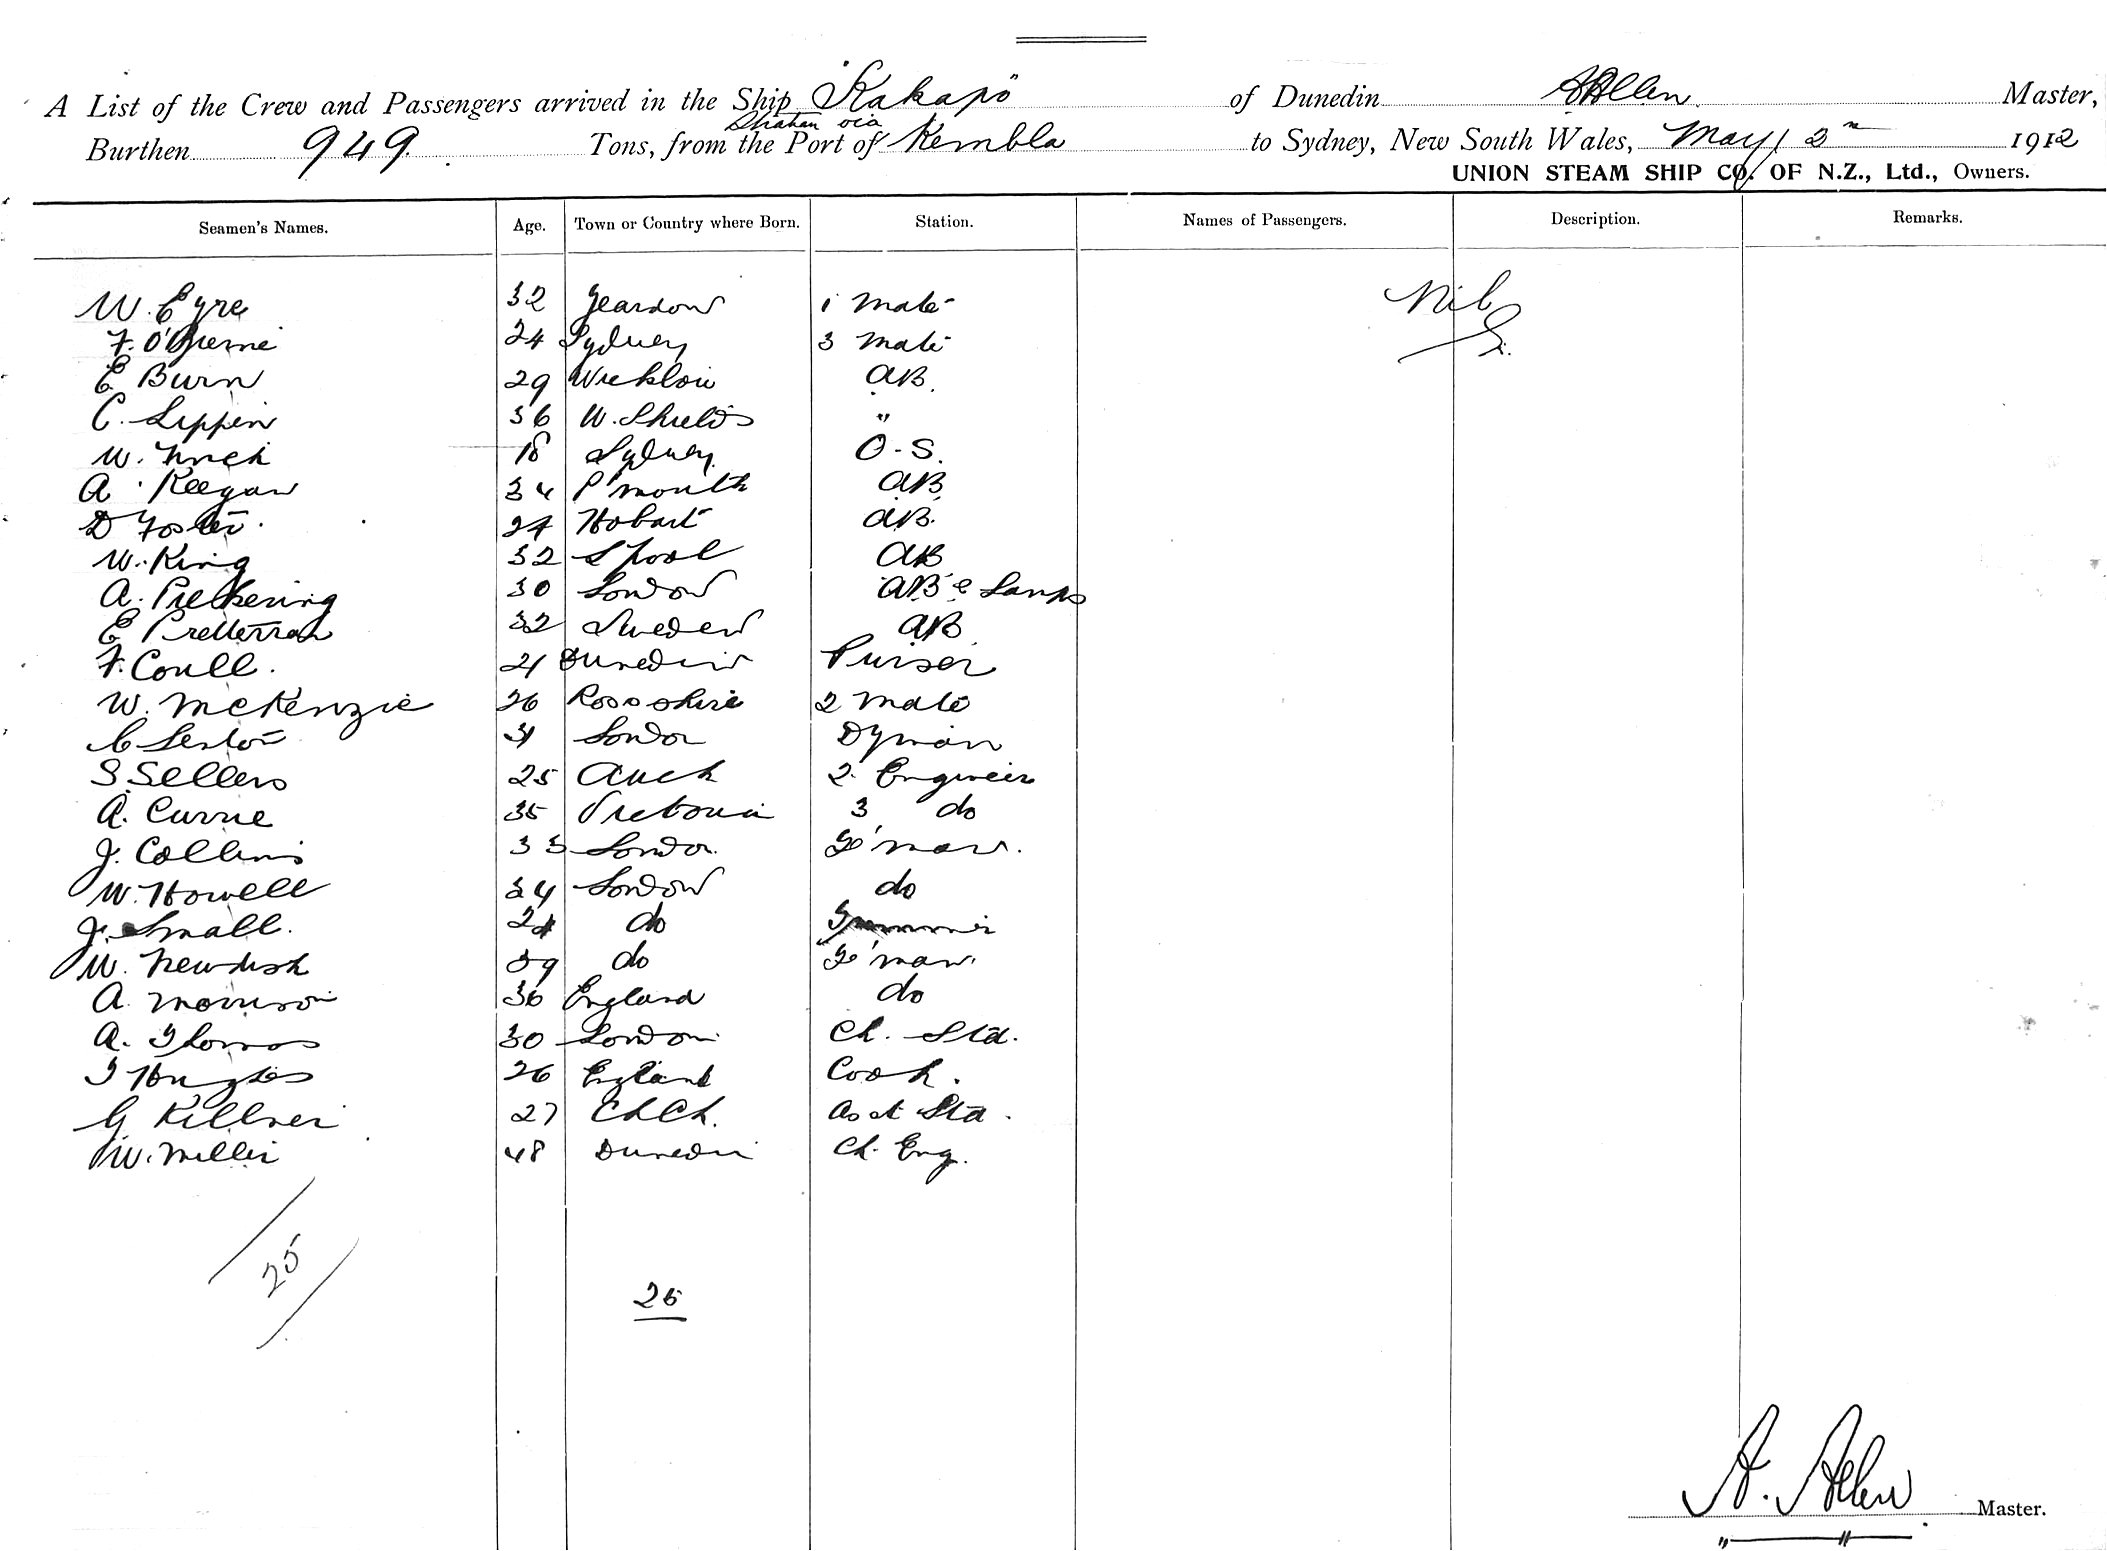 A List of the Crew and Passengers arrived in the Ship "Kakapo" of Dunedin A Allen Master,
Burthen 949 Tons, from the Port of Strahan via Kembla to Sydney, New South Wales, May 2nd 1912
UNION STEAM SHIP CO. OF N.Z., Ltd., Owners.
Seamen's Names. Age. Town or Country where Born. Station. Names of Passengers. Description. Remarks.
W. Eyre 32 Yeardon 1 Mate Nil
F. O'Byrne 24 Sydney 3 Mate
E Burn 29 Wicklow AB.
C. Lippin 36 W. Shields "
W. 18 Sydney O.S.
A. Keegan 34 P'mouth AB
D Foster. 24 Hobart AB.
W. King 32 L'pool AB
A. Pickering 30 London AB & Lamps
E 32 Sweden AB
F. Coull. 21 Dunedin Purser
W. McKenzie 26 Rossshire 2 Mate
C 31 London Dyman
S. Sellers 25 Auck 2. Engineer
A. Currie 35 Pretoria 3 do
J. Collins 33 London F'man.
W. Howell 34 London do
J. Small. 24 do
W. 39 do F'man.
A. Morrison 36 England do
A. Thomas 30 London Ch. Std.
T Hughes 26 England Cook.
G Killner 27 ChCh. Asst Std.
W. Miller 48 Dunedin Ch. Eng.
25
25
A. Allen Master.